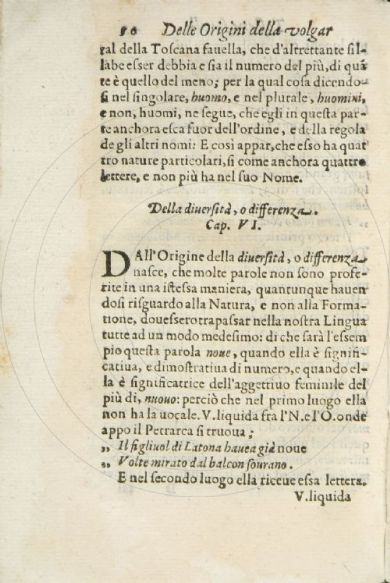 50 Delle Origini della volgar
ral della Toscana fauella, che d'altrettante sil-
labe esser debbia e sia il numero del più, di quã
te è quello del meno; per la qual cosa dicendo-
si nel singolare, huomo, e nel plurale, huomini,
e non, huomi, ne segue, che egli in questa par-
te anchora esca fuor dell'ordine, e della regola
de gli altri nomi: E cosi appar, che esso ha quat
tro nature particolari, si come anchora quattro
lettere, e non più ha nel suo Nome.
Della diuersità, o differenza.
Cap. VI.
DAll'Origine della diuersità, o differenza
nasce, che molte parole non sono profe-
rite in una istessa maniera, quantunque hauen
dosi risguardo alla Natura, e non alla Forma-
tione, douessero trapassar nella nostra Lingua
tutte ad un modo medesimo: di che sarà l'essem
pio questa parola noue, quando ella è signifi-
catiua, e dimostratiua di numero, e quando el-
la è significatrice dell'aggettiuo feminile del
più di, nuouo: perciò che nel primo luogo ella
non ha la uocale. V. liquida fra l'N. e l'O. onde
appo il Petrarca si truoua;
„ Il figliuol di Latona hauea già noue
„ Volte mirato dal balcon sourano.
E nel secondo luogo ella riceue essa lettera.
V. liquida